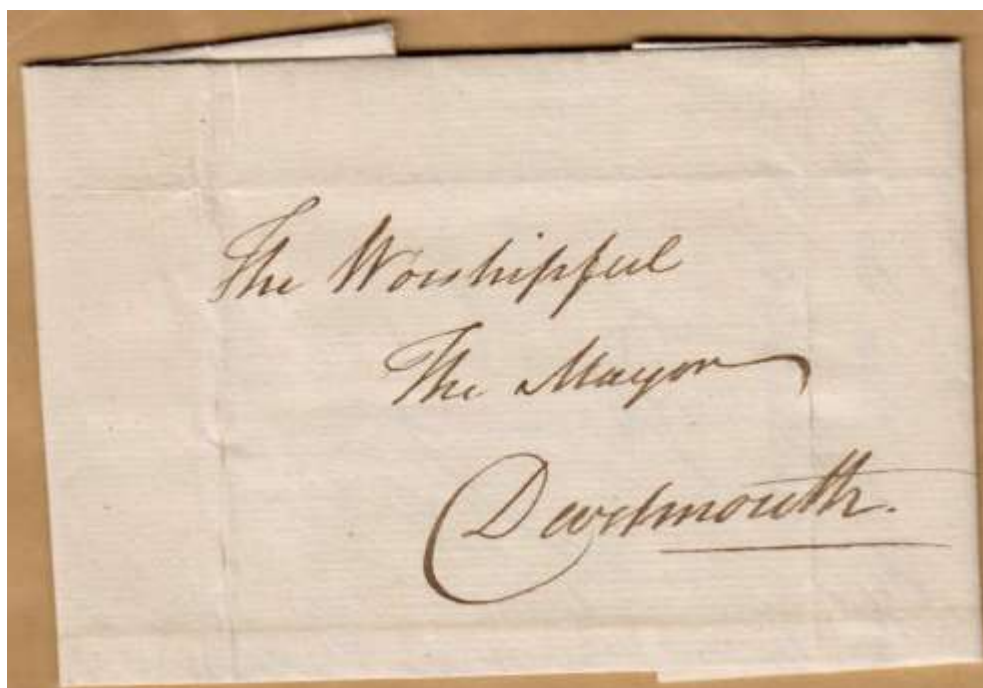 The Worshipful
The Mayor
Dartmouth.